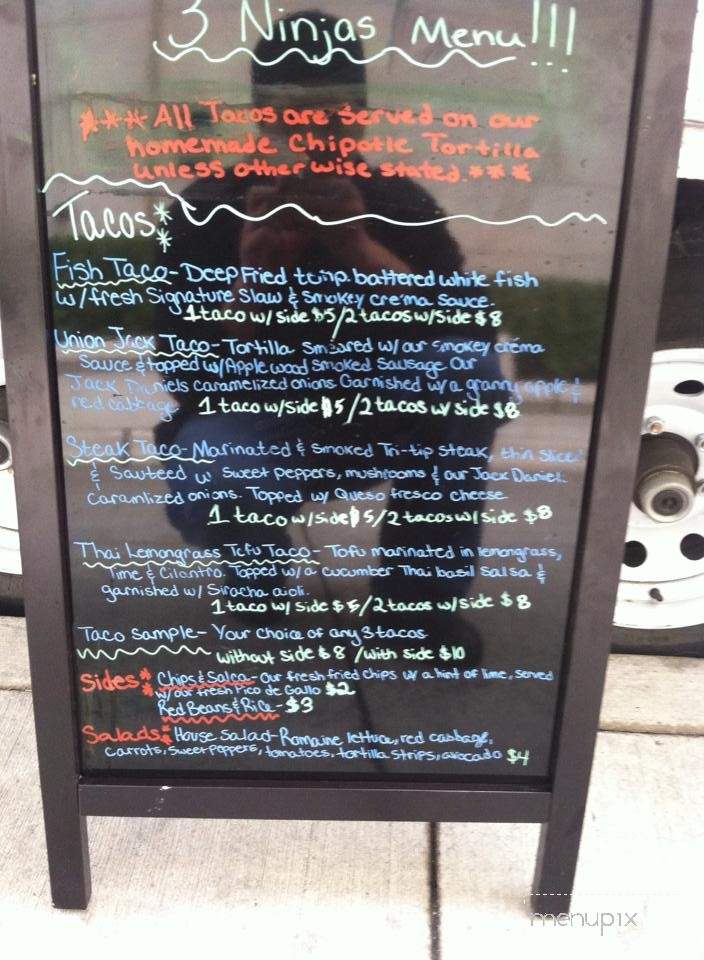 3 Ninjas Menu!!!
*** All Tacos are served on our
homemade Chipotle Tortilla
unless otherwise stated.***
Tacos:
Fish Taco- Deep Fried temp. battered white fish
w/ fresh Signature Slaw & smokey crema sauce.
1 taco w/ side $5/2 tacos w/side $8
Union Jack Taco- Tortilla smeared w/ our smokey crema
sauce & topped w/Apple wood smoked sausage. Our
Jack Daniels caramelized onions. Garnished w/ a granny apple &
red cabbage. 1 taco w/side $5/2 tacos w/ side $8
Steak Taco- Marinated & smoked Tri-tip steak, thin sliced
& Sauteed w/ sweet peppers, mushrooms & our Jack Daniel
Caramlized onions. Topped w/ Queso fresco cheese
1 taco w/side $5/2 tacos w/ side $8
Thai Lemongrass Tofu Taco- Tofu marinated in lemongrass,
lime & Cilantro. Topped w/a cucumber Thai basil salsa &
garnished w/ Siracha aioli.
1 taco w/ side $5/2 tacos w/ side $8
Taco sample- Your choice of any 3 tacos
without side $8 /with side $10
Sides: Chips & Salsa- Our fresh fried chips w/ a hint of lime, served
w/ our fresh Pico de Gallo $2
Red Beans & Rice- $3
Salads: House Salad- Romaine lettuce, red cabbage,
carrots, sweet peppers, tomatoes, tortilla strips, avocado $4
menupix